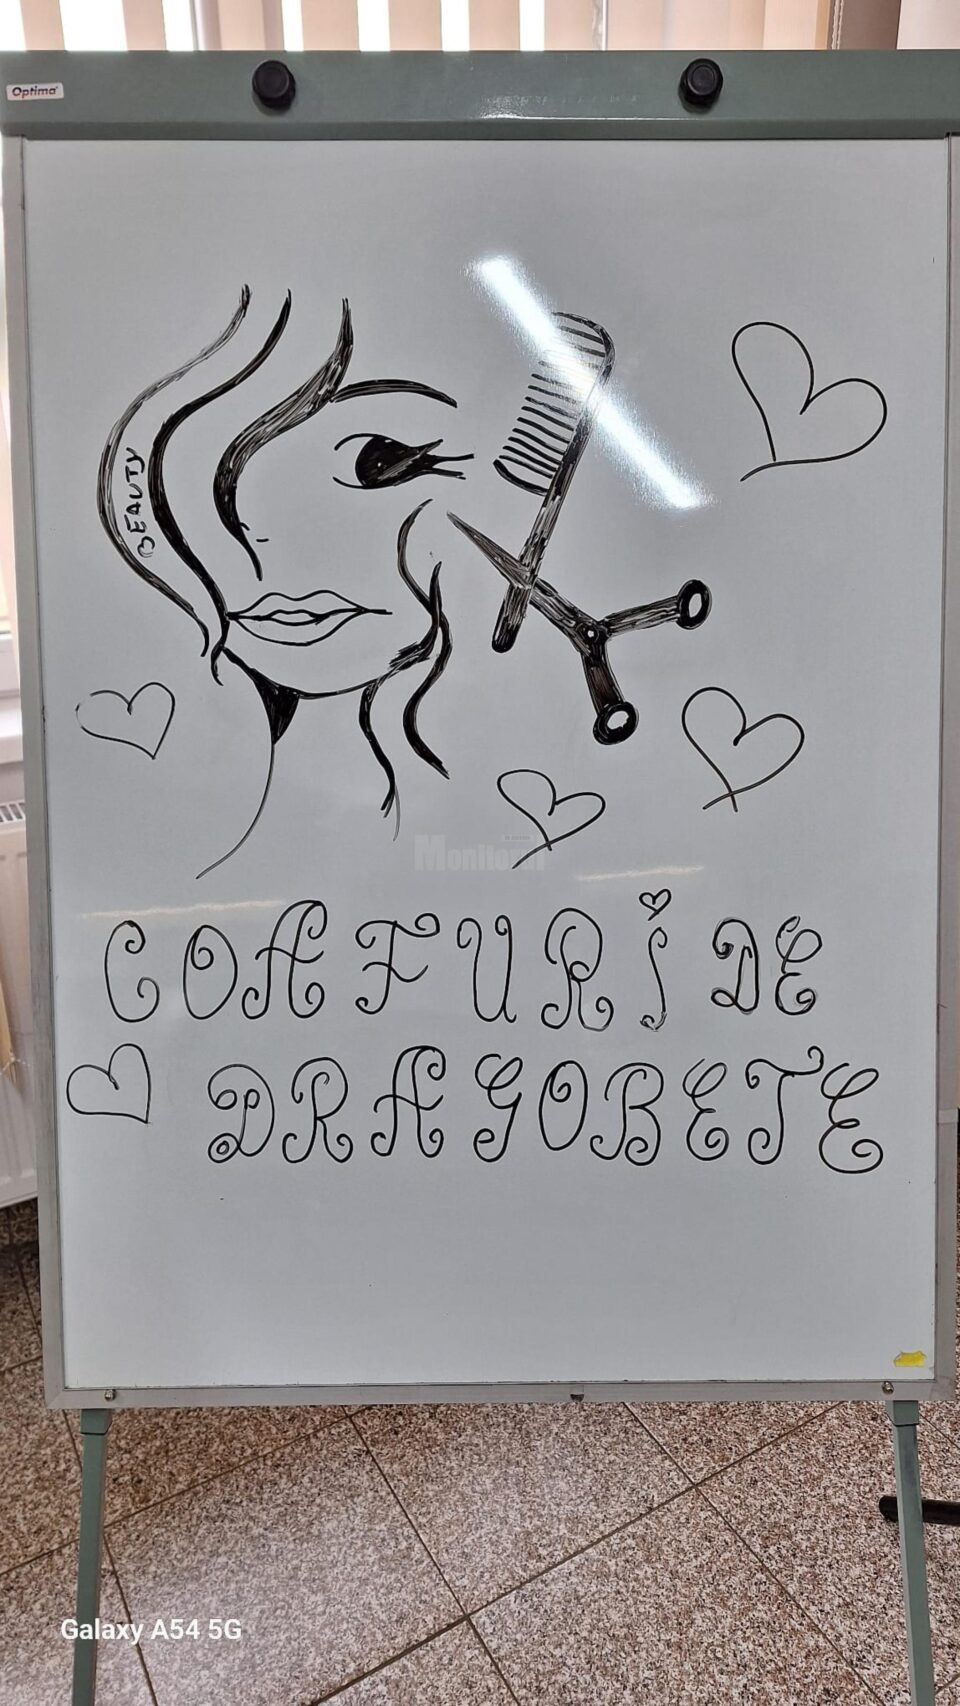 Optima
BEAUTY
Monitorul
COAFURI DE
DRAGOBETE
Galaxy A54 5G